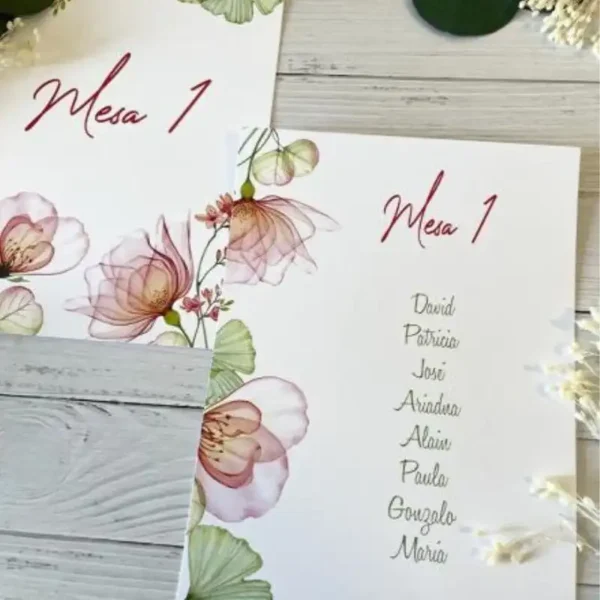 Mesa 1
Mesa 1
David
Patricia
José
Ariadna
Alain
Paula
Gonzalo
María